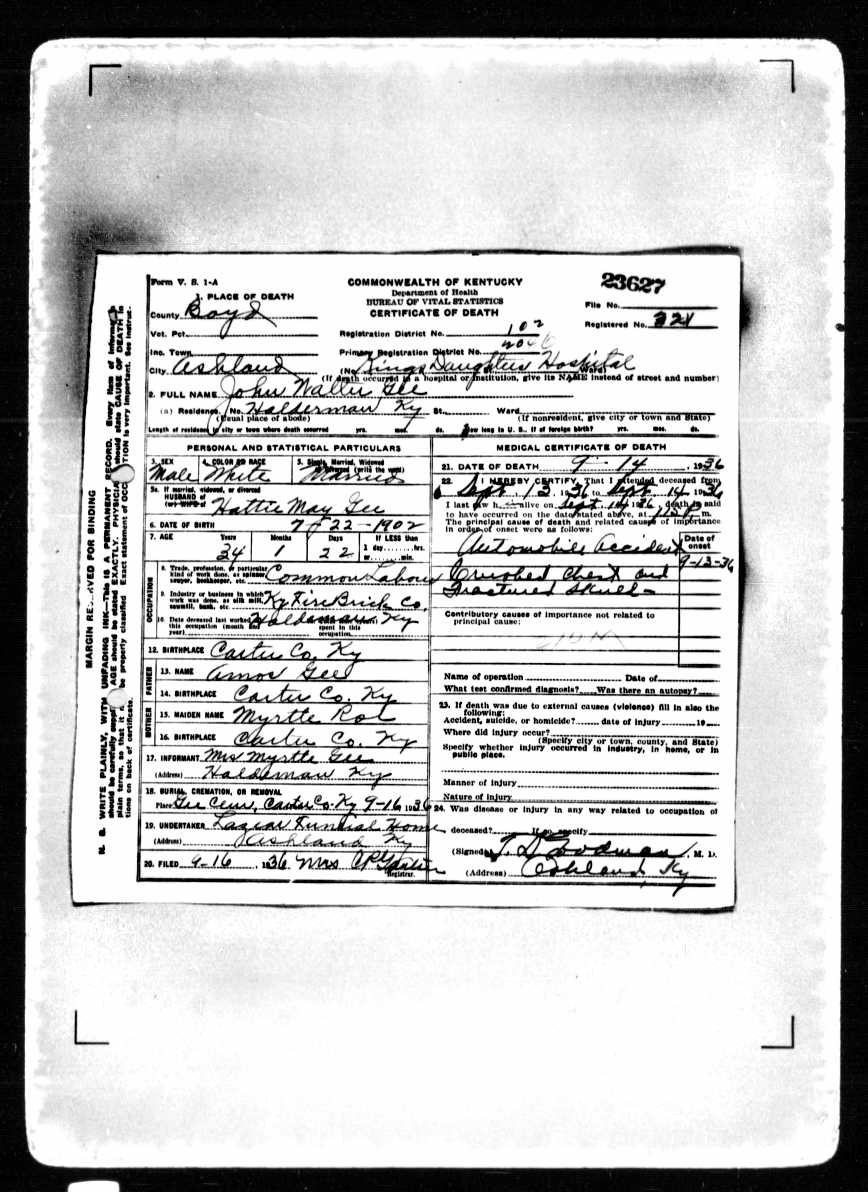 Form V. S. 1-A
1. PLACE OF DEATH
County Boyd
Vot. Pct.
Inc. Town
City Ashland
COMMONWEALTH OF KENTUCKY
Department of Health
BUREAU OF VITAL STATISTICS
CERTIFICATE OF DEATH
Registration District No. 102
Primary Registration District No.
(No. Kings Daughters Hospital
23627
File No.
Registered No. 321
(If death occurred in a hospital or institution, give its NAME instead of street and number)
2. FULL NAME John Walter Gee
(a) Residence. No. Haldeman Ky St. Ward
(Usual place of abode) (If nonresident, give city or town and State)
Length of residence in city or town where death occurred yrs. mos. ds. How long in U. S., if of foreign birth? yrs. mos. ds.
PERSONAL AND STATISTICAL PARTICULARS
3. SEX Male
4. COLOR OR RACE White
5. Single, Married, Widowed
Divorced (write the word) Married
5a. If married, widowed, or divorced
HUSBAND of
(or) WIFE of Hattie May Gee
6. DATE OF BIRTH 7-22-1902
7. AGE Years Months Days If LESS than
34 1 22 1 day,........hrs.
or........min.
OCCUPATION
8. Trade, profession, or particular
kind of work done, as spinner,
sawyer, bookkeeper, etc. Common Labour
9. Industry or business in which
work was done, as silk mill,
sawmill, bank, etc. Ky Fire Brick Co.
10. Date deceased last worked at
this occupation (month and
year) Haldeman Ky
spent in this
occupation
12. BIRTHPLACE Carter Co. Ky
FATHER
13. NAME Amos Gee
14. BIRTHPLACE Carter Co. Ky
MOTHER
15. MAIDEN NAME Myrtle Roe
16. BIRTHPLACE Carter Co. Ky
17. INFORMANT Mrs Myrtle Gee
(Address) Haldeman Ky
18. BURIAL, CREMATION, OR REMOVAL
Place Gee Cem, Carter Co. Ky 9-16 1936
19. UNDERTAKER Lazear Funeral Home
(Address) Ashland Ky
20. FILED 9-16, 1936 Mrs
Registrar.
MEDICAL CERTIFICATE OF DEATH
21. DATE OF DEATH 9-14, 1936
22. I HEREBY CERTIFY, That I attended deceased from
Sept. 13, 1936 to Sept. 14 1936
I last saw h alive on Sept. 14 1936 death is said
to have occurred on the date stated above, at m.
The principal cause of death and related causes of importance
in order of onset were as follows:
Date of
onset
Automobile Accident
9-13-36
Crushed Chest and
Fractured Skull
Contributory causes of importance not related to
principal cause:
Name of operation Date of
What test confirmed diagnosis? Was there an autopsy?
23. If death was due to external causes (violence) fill in also the
following:
Accident, suicide, or homicide? date of injury 19
Where did injury occur?
(Specify city or town, county, and State)
Specify whether injury occurred in industry, in home, or in
public place.
Manner of injury
Nature of injury
24. Was disease or injury in any way related to occupation of
deceased? If so, specify
(Signed) T. D. Goodman, M. D.
(Address) Ashland, Ky
MARGIN RESERVED FOR BINDING
N. B. WRITE PLAINLY, WITH UNFADING INK—This IS A PERMANENT RECORD. Every item of
should be carefully AGE should be stated EXACTLY. PHYSICIANS should state CAUSE OF DEATH in
plain terms, so that it may be properly classified. Exact statement of OCCUPATION is very important. See instruc-
tions on back of certificate.